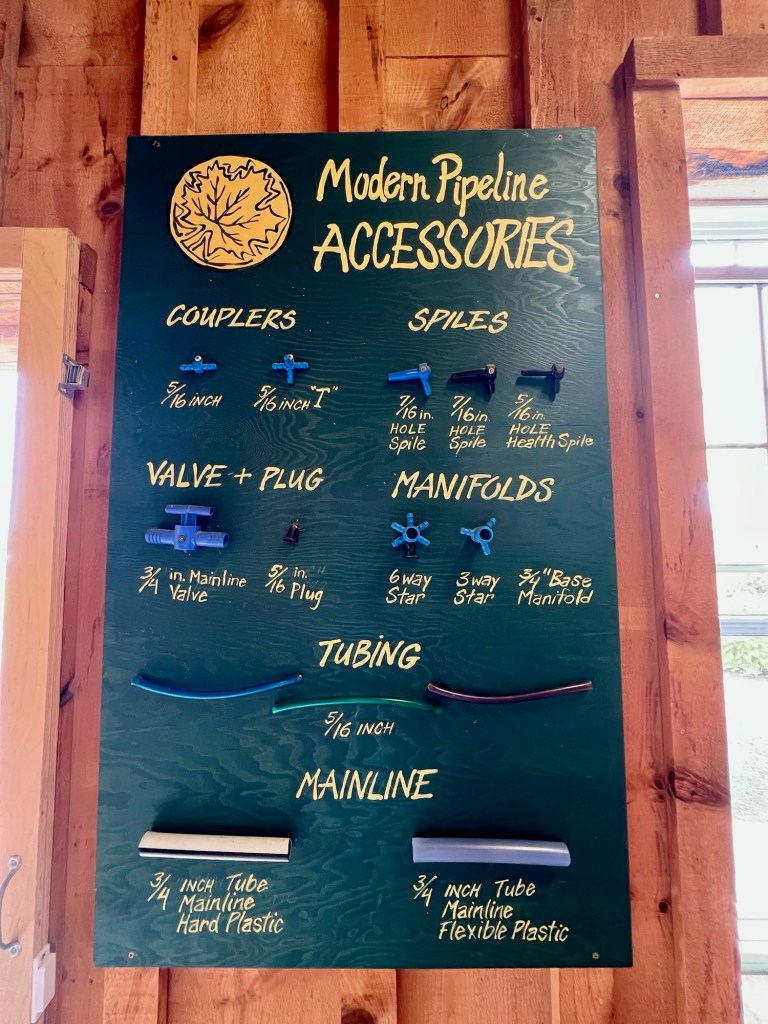 Modern Pipeline
ACCESSORIES
COUPLERS
5/16 INCH
5/16 INCH "T"
SPILES
7/16 in.
HOLE
Spile
7/16 in.
HOLE
Spile
5/16 in.
HOLE
Health Spile
VALVE + PLUG
3/4 in. Mainline
Valve
5/16 in.
Plug
MANIFOLDS
6 way
Star
3 way
Star
3/4" Base
Manifold
TUBING
5/16 INCH
MAINLINE
3/4 INCH Tube
Mainline
Hard Plastic
3/4 INCH Tube
Mainline
Flexible Plastic